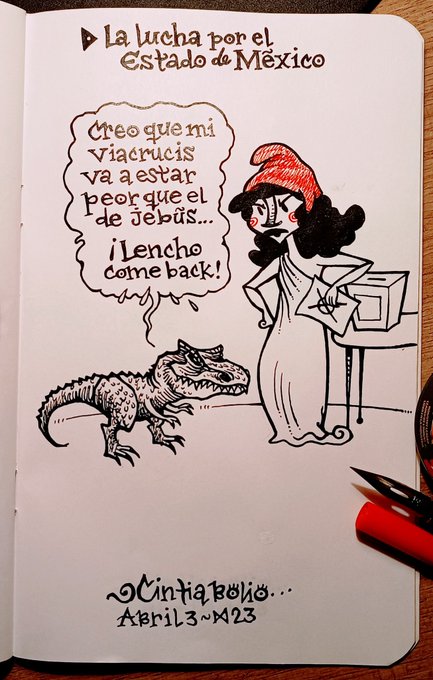 La lucha por el
Estado de México
Creo que mi
viacrucis
va a estar
peor que el
de Jebús...
¡Lencho
come back!
Cintia Bolio...
Abril 3~23